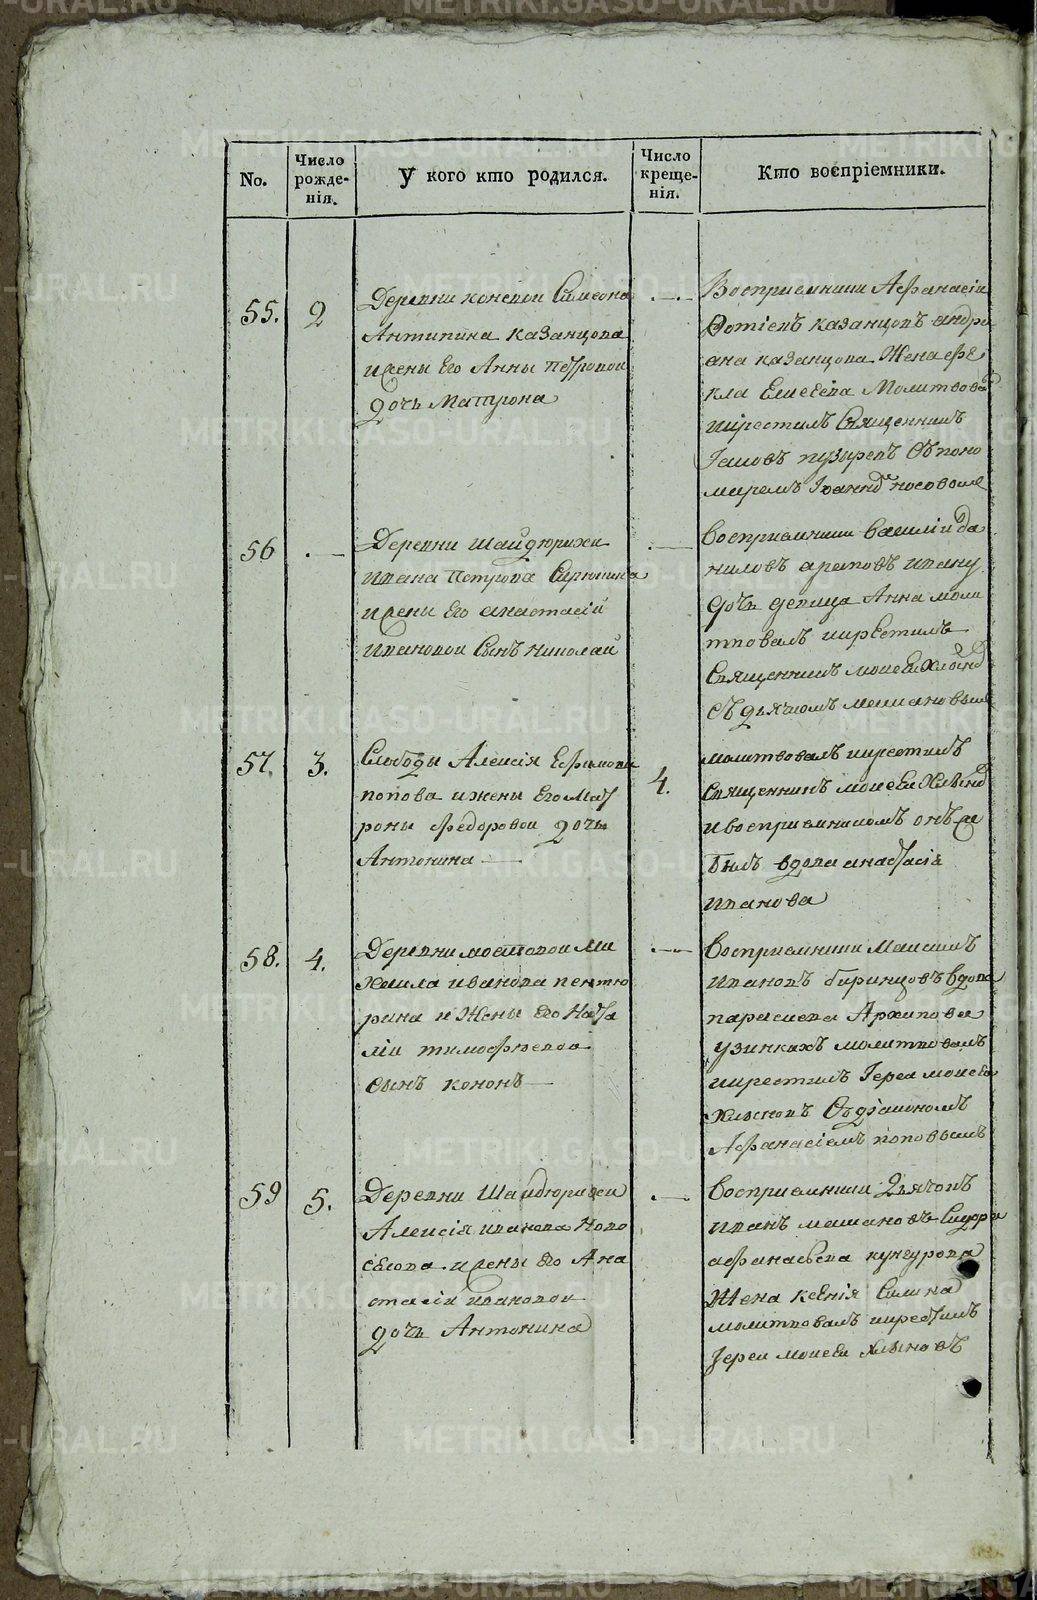 No.
Число рожде-нія.
У кого кто родился.
Число креще-нія.
Кто воспріемники.
55.
2
Деревни коневои Симеона
Антипина казанцова
ижены Его Анны Петровои
дочь Матрона
Восприемники Афанасіи
Фотіевъ казанцовъ андри
ана казанцова Жена фе
кла Елисеева Молитвовалъ
икрестилъ Священникъ
Іаковъ пузыревъ Съ поно
маремъ Іоанномъ носовымъ
56
Деревни шайдюрихи
ивана Петрова
ижены Его анастасіи
Ивановои Сынъ Николай
Восприемники василіи да
ниловъ араповъ ивану
дочь девица Анна моли
твовалъ икрестилъ
Священникъ моисеи Хлыновъ
съ дьячкомъ мешановымъ
57.
3.
Слободы Алексія Ефимова
попова ижены Его Мат
роны федоровои дочь
Антонина
4.
молитвовалъ икрестилъ
священникъ моисеи Хлыновъ
ивосприемникомъ онъ же
былъ вдова анастасія
иванова
58.
4.
Деревни мостовои Ми
хаила иванова пентю
рина и Жены Его Ната
ліи тимофѣевои
сынъ кононъ
Восприемники Максимъ
ивановъ биринцовъ вдова
параскева Архипова
узинкахъ молитвовалъ
икрестилъ Іереи моисеи
Хлыновъ Съ діакономъ
Афанасіемъ поповымъ
59
5.
Деревни Шайдюрихи
Алексія иванова Ново
сеова ижены Его Ана
стасіи ивановои
дочь Антонина
Восприемники дьячокъ
иванъ мешановъ Сидора
афанасьева кунгурова
Жена ксенія
молитвовалъ икрестилъ
Іереи моисеи Хлыновъ
METRIKI.GASO-URAL.RU